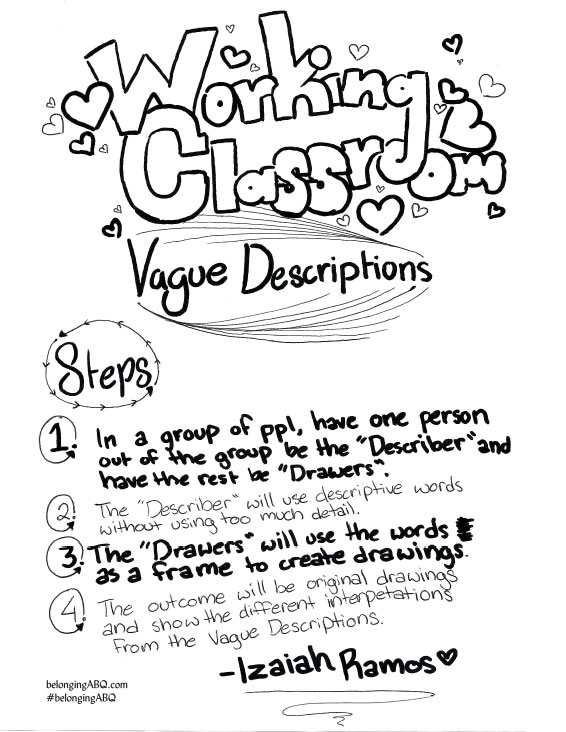 Working
Classroom
Vague Descriptions
Steps
1. In a group of ppl, have one person
out of the group be the "Describer" and
have the rest be "Drawers".
2. The "Describer" will use descriptive words
without using too much detail.
3. The "Drawers" will use the words
as a frame to create drawings.
4. The outcome will be original drawings
and show the different interpetations
from the Vague Descriptions.
-Izaiah Ramos
belongingABQ.com
#belongingABQ